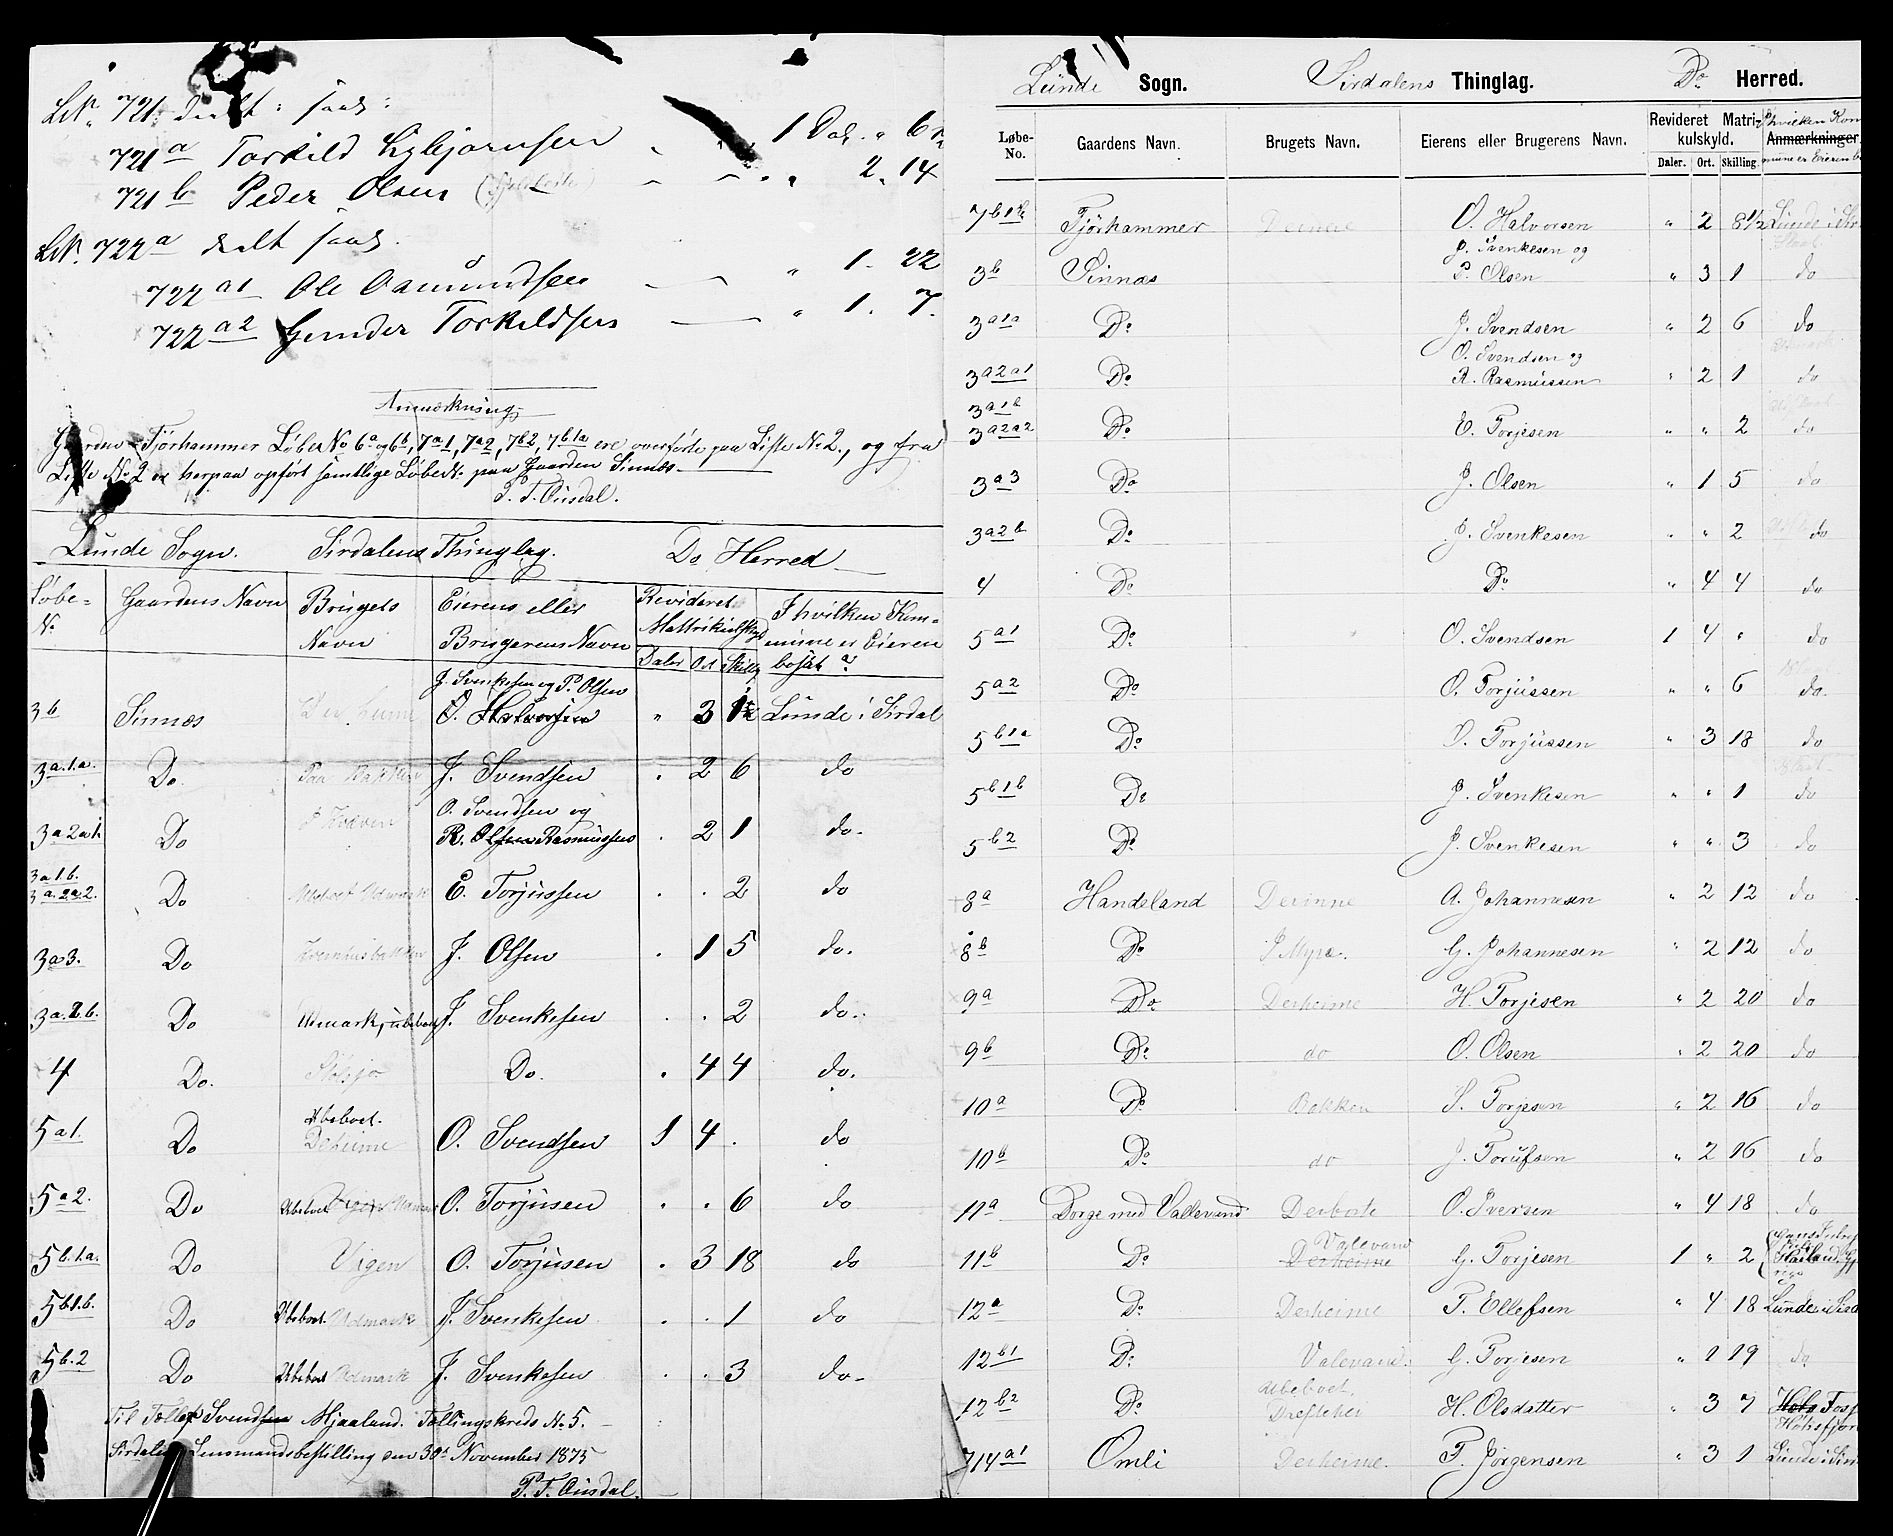 LN. 721 delt: saad:
721a Torkild 1 Dal. " 6
721b Peder Olsen " 2. 14
LN. 722a delt saad.
722a1 Ole Aamundsen " 1. 22
722a2 Gunder Torkildsen " 1. 7.
Anmærkning,
Gaarden Tjörhammer LöbeNo 6a og 6b, 7a1, 7a2, 7b2, 7b1a ere overförte paa Liste No 2., og fra
Liste No 2 er herpaa opfört samtlige LöbeN. paa Gaarden Sinnæs.
P. T. Ousdal.
Lunde Sogn. Sirdalens Thinglag. Do Herred
Löbe-No Gaardens Navn Brugets Navn Eierens eller Brugerens Navn Revideret Mattrikulskyld Daler Ort Skilling I hvilken Kommune er Eieren bosat?
3b Sinnæs J. Svenkesen og P. Olsen O. Halvorsen " 3 1 Lunde i Sirdal
3a.1.a. Do. Paa Bakken J. Svendsen . 2 6 do
3a2a1. Do O. Svendsen og R. Olsen Rasmussen . 2 1 do.
3a1b. 3a.2a2. Do Ubeboet Udmark E. Torjussen . . 2 do
3a3. Do J. Olsen . 1 5 do.
3a.2.b. Do Udmark, ubeboet J. Svenkesen . . 2 do.
4 Do. Do. . 4 4 do.
5a1. Do Ubeboet. Deheime O. Svendsen 1 4 . do
5a2. Do Ubeboet O. Torjusen . . 6 do
5b.1.a. Do Vigen O. Torjusen . 3 18 do
5b1.b. Do Ubeboet Udmark J. Svenkesen . . 1 do
5b.2 Do Ubeboet Udmark J. Svenkesen . . 3 do.
Til Tollef Svendsen Mjaaland. Tællingskreds No 5.
Sirdalens Lensmandsbestilling den 30te November 1875
P. T. Ousdal.
Lunde Sogn. Sirdalens Thinglag. Do Herred.
Løbe-No. Gaardens Navn. Brugets Navn. Eierens eller Brugerens Navn. Revideret Matrikulskyld. Daler. Ort. Skilling. Anmærkninger
7b1b Tjörhammer Derinne O. Halvorsen " 2 8 1/2 Lunde i Sir
3b Sinnæs J. Svenkesen og P. Olsen " 3 1 do
3a1a Do J. Svendsen " 2 6 do
3a2a1 Do O. Svendsen og R. Rasmussen " 2 1 do
3a1b 3a2a2 Do E. Torjesen " " 2 do
3a3 Do J. Olsen " 1 5 do
3a2b Do J. Svenkesen " " 2 do
4 Do Do " 4 4 do
5a1 Do O. Svendsen 1 4 " do
5a2 Do O. Torjussen " " 6 do.
5b1a Do O. Torjussen " 3 18 do
5b1b Do J. Svenkesen " " 1 do
5b2 Do J. Svenkesen " " 3 do
8a Handeland Derinne A. Johannesen " 2 12 do
8b Do I Myra. G. Johannesen " 2 12 do
9a Do Derheime H. Torjesen " 2 20 do
9b Do do O. Olsen " 2 20 do
10a Do Bakken S. Torjesen " 2 16 do
10b Do do J. Torufsen " 2 16 do
11a Dorge med Vallevand Derborte O. Iversen " 4 18 do
11b Do Valevand Derheime G. Torjesen 1 " 2
12a Do Derheime T. Ellefsen " 4 18 Lunde i Sird
12b1 Do Valevand. G. Torjesen " 1 19 do
12b2 Do Ubeboet. H. Olsdatter " 3 7
714a1 Omli Derheime. T. Jörgensen " 3 1 Lunde i Sir